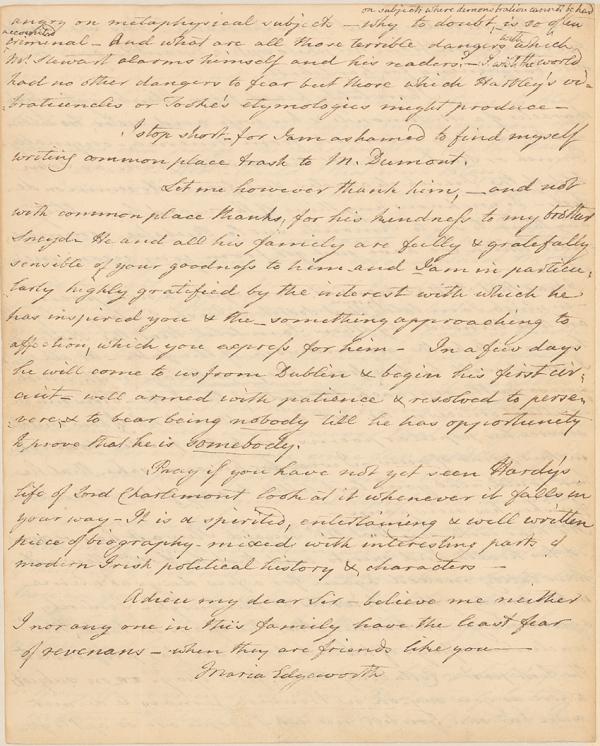 on subjects where demonstration cannot be had
angry on metaphysical subjects – why to doubt, is so often
accounted
criminal – And what are all those terrible dangers with which
Mr. Stewart alarms himself and his readers? – I wish the world
had no other dangers to fear but those which Hartley's vi-
bratiuncles or Tooke's etymologies might produce –
I stop short – for I am ashamed to find myself
writing common place trash to M. Dumont.
Let me however thank him, – and not
with common place thanks, for his kindness to my brother
Sneyd – He and all his family are fully & gratefully
sensible of your goodness to him and I am in particu-
larly highly gratified by the interest with which he
has inspired you & the – something approaching to
affection, which you express for him – In a few days
he will come to us from Dublin & begin his first cir-
cuit – well armed with patience & resolved to perse-
vere, & to bear being nobody till he has opportunity
to prove that he is somebody.
Pray if you have not yet seen Hardy's
life of Lord Charlemont look at it whenever it falls in
your way – It is a spirited, entertaining & well written
piece of biography – mixed with interesting parts of
modern Irish political history & characters –
Adieu my dear Sir – believe me neither
I nor any one in this family have the least fear
of revenans – when they are friends like you –
Maria Edgeworth